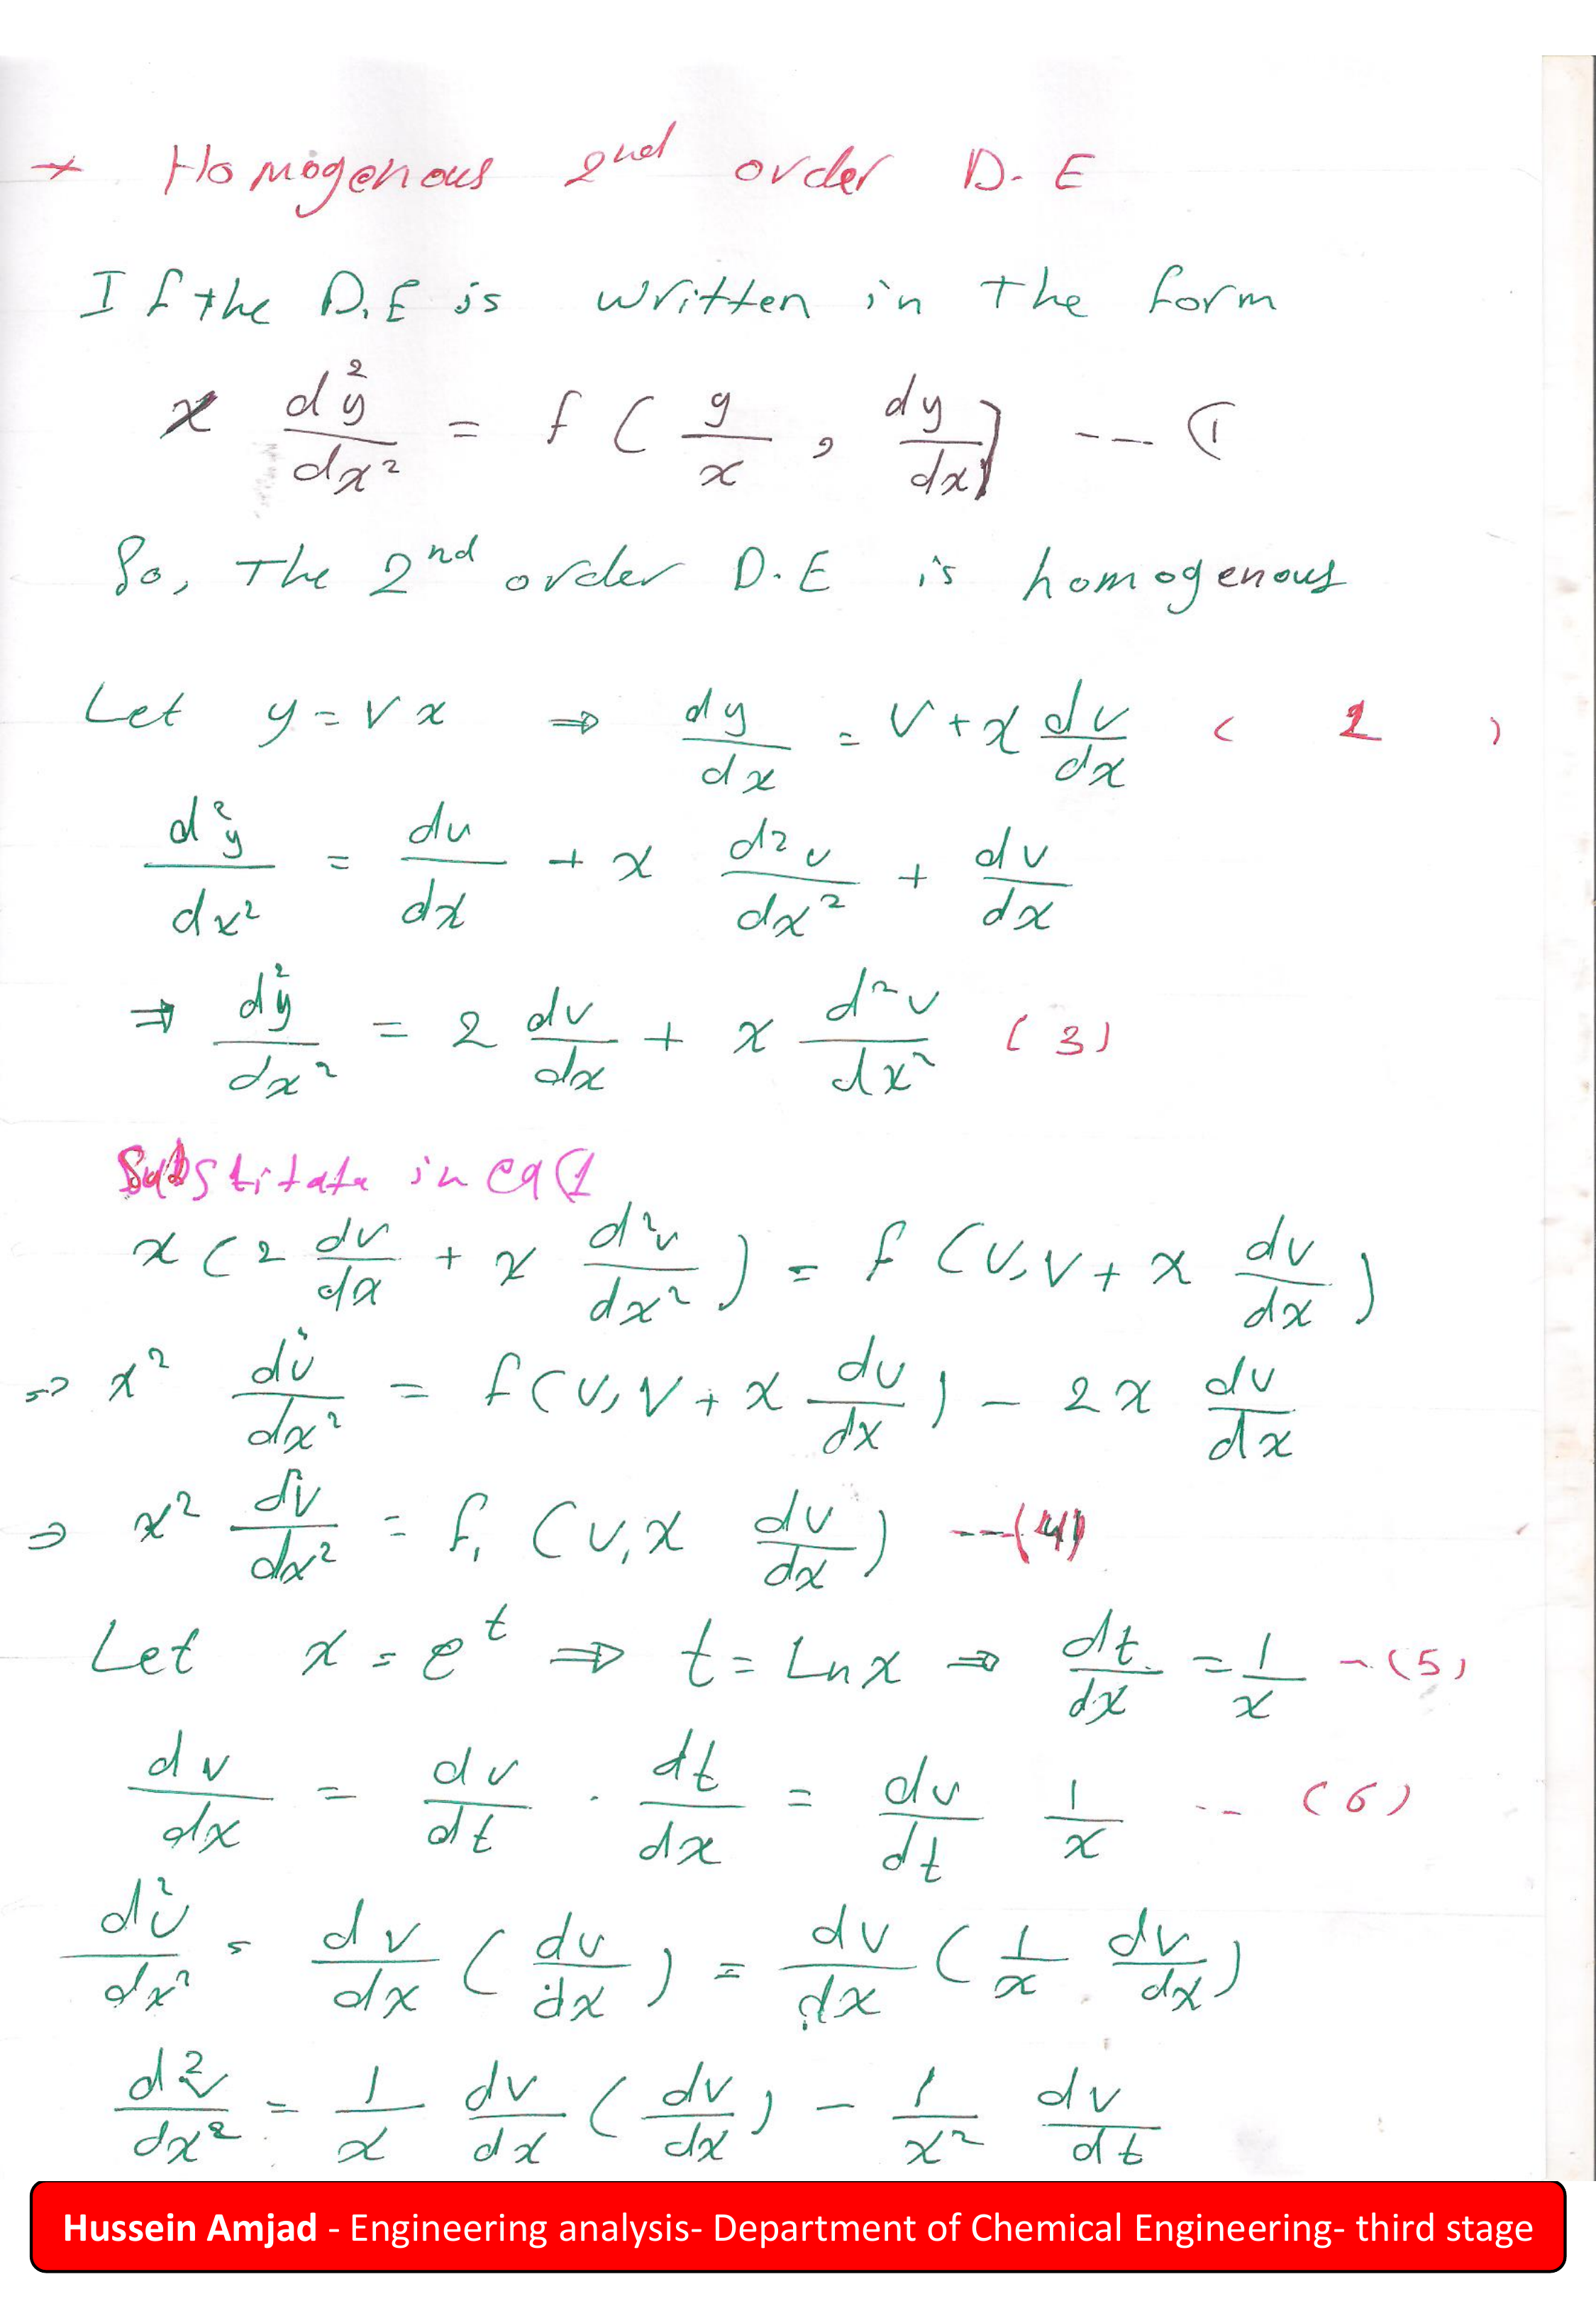 → Homogenous 2nd order D.E
If the D.E is written in the form
x d²y/dx² = f(y/x, dy/dx) --- (1
So, The 2nd order D.E is homogenous
Let y=vx ⇒ dy/dx = v+x dv/dx (2)
d²y/dx² = dv/dx + x d²v/dx² + dv/dx
⇒ d²y/dx² = 2 dv/dx + x d²v/dx² (3)
Substitute in eq(1
x(2 dv/dx + x d²v/dx²) = f(v, v+x dv/dx)
⇒ x² d²v/dx² = f(v, v+x dv/dx) - 2x dv/dx
⇒ x² d²v/dx² = f₁(v, x dv/dx) ---(4)
Let x = e^t ⇒ t = Ln x ⇒ dt/dx = 1/x -(5)
dv/dx = dv/dt . dt/dx = dv/dt 1/x -- (6)
d²v/dx² = dv/dx (dv/dx) = dv/dx (1/x dv/dx)
d²v/dx² = 1/x dv/dx (dv/dx) - 1/x² dv/dt
Hussein Amjad - Engineering analysis- Department of Chemical Engineering- third stage